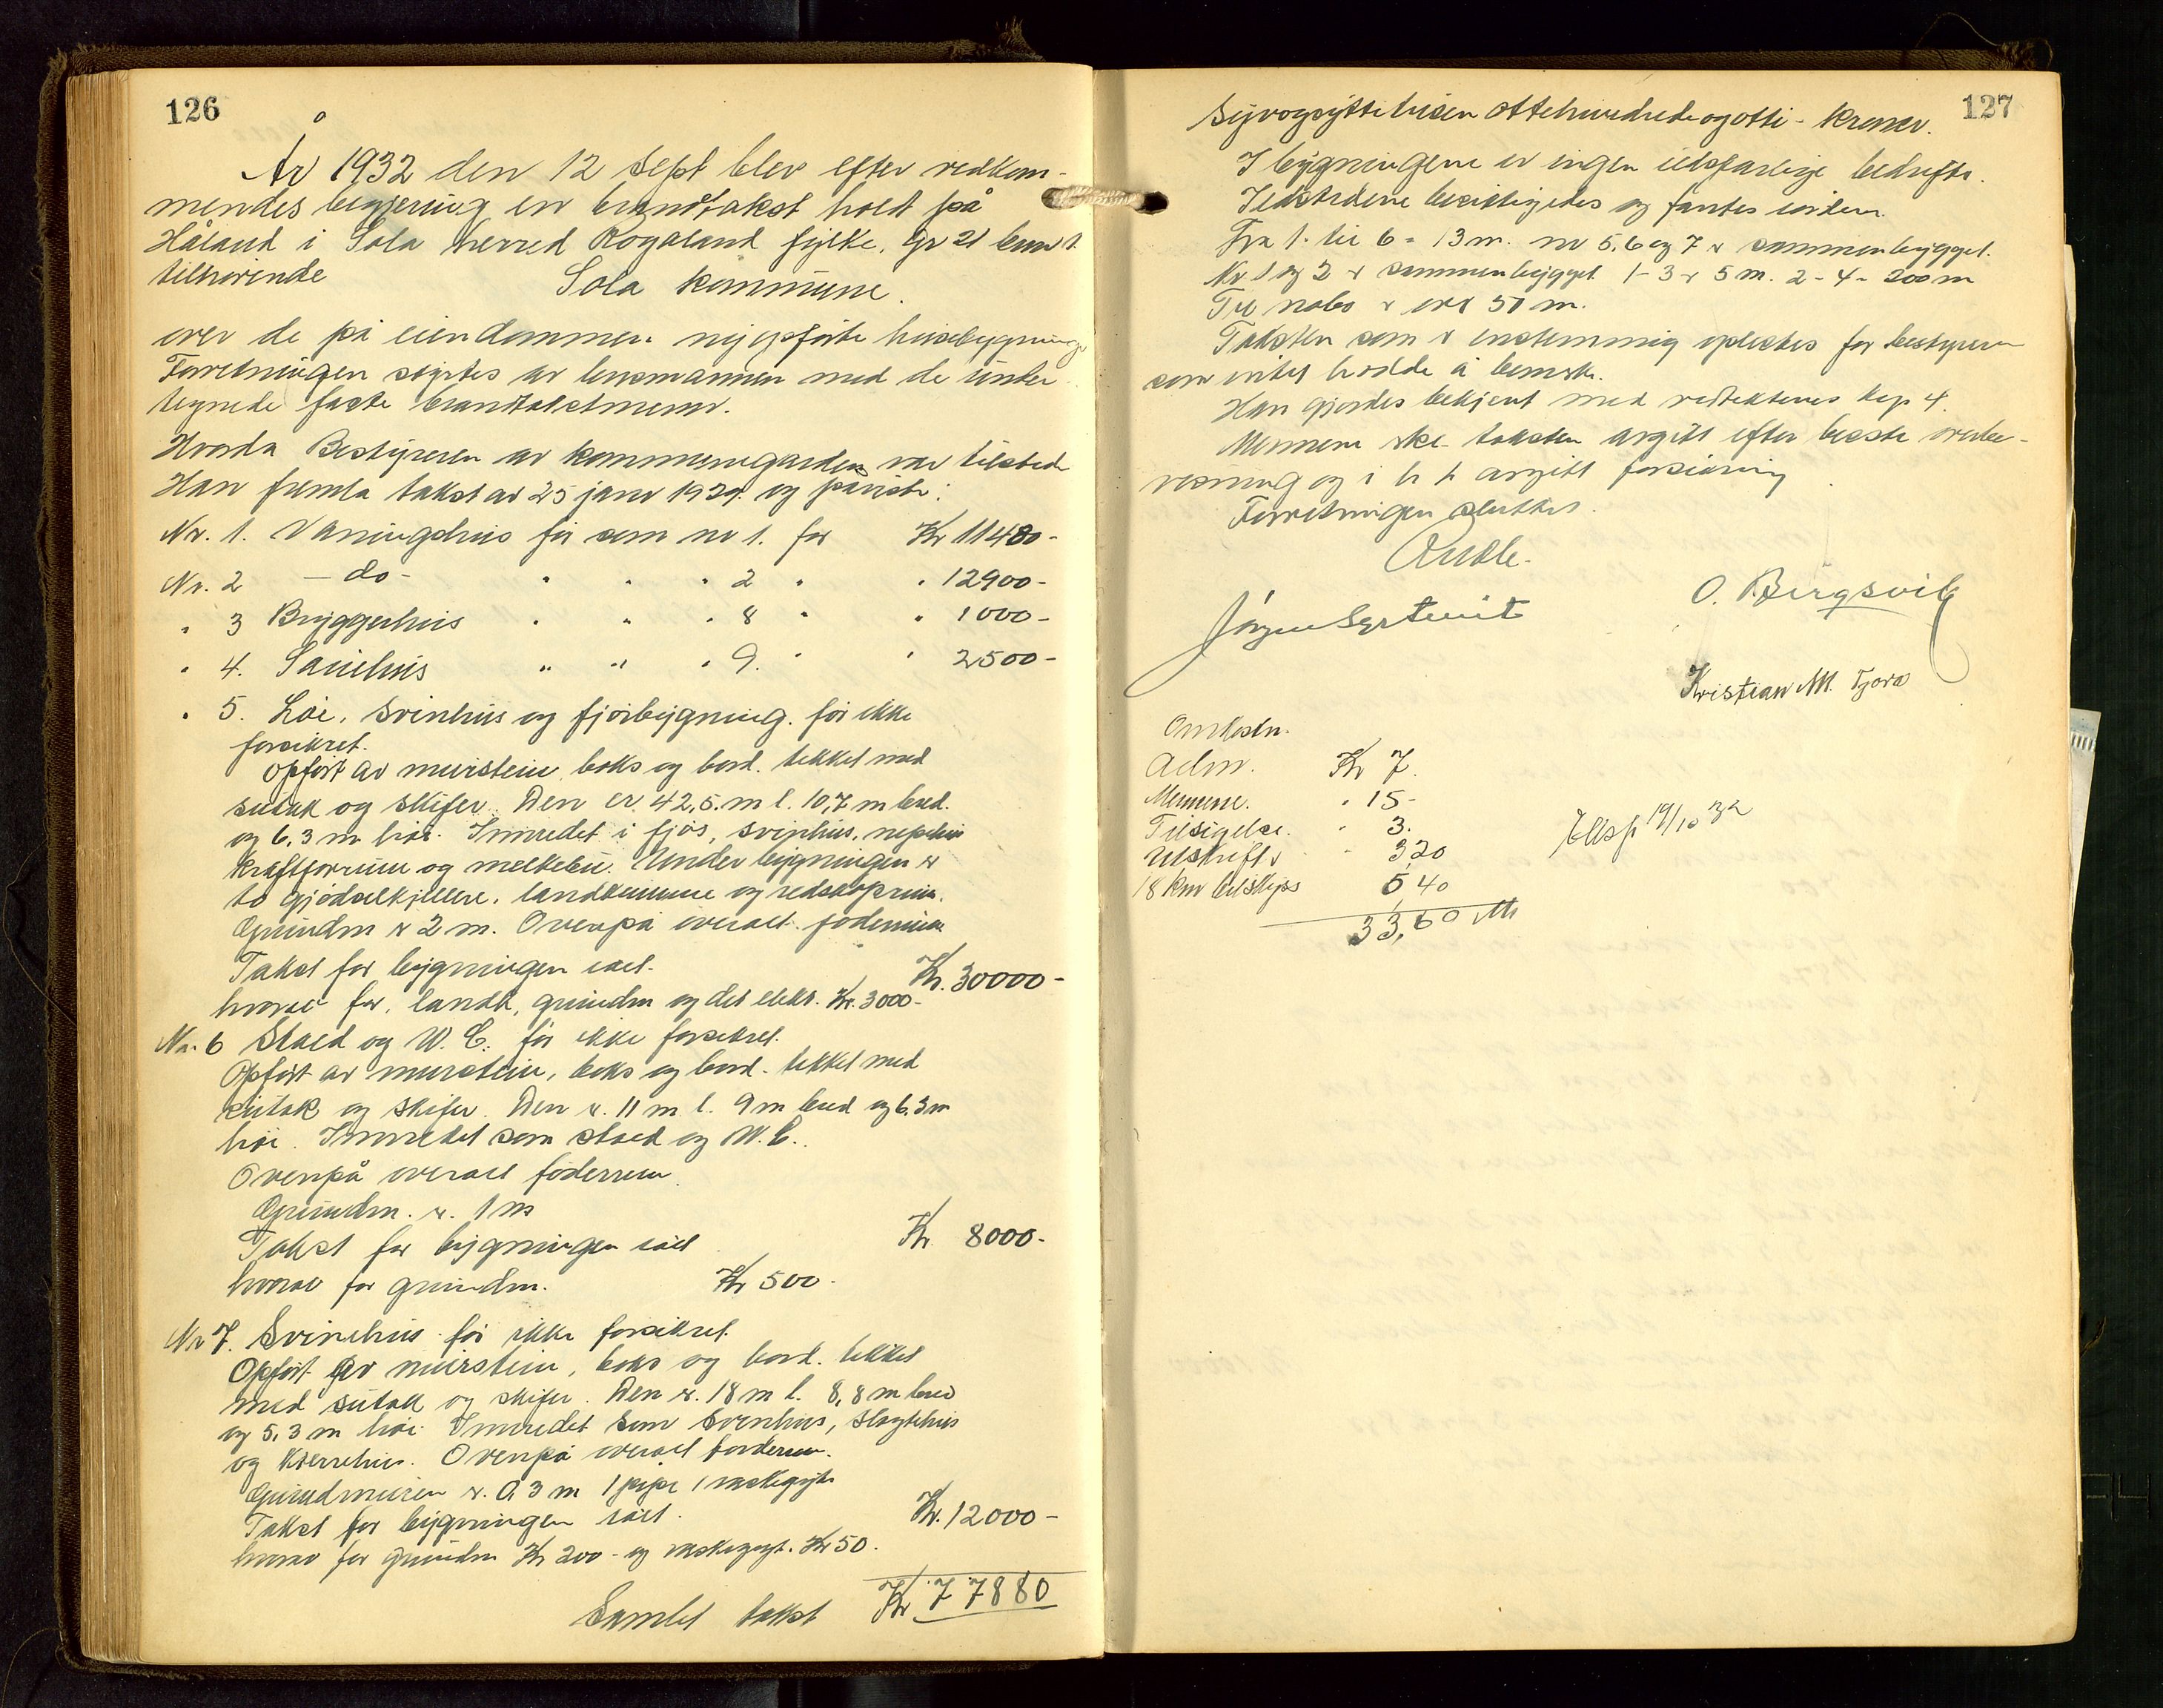 126
År 1932 den 12 Sept blev efter vedkom-
mendes begjering en brandtakst holdt på
Håland i Sola herred Rogaland fylke. Gr 21 bnr 1.
tilhørende Sola kommune.
over de på eiendommen nyopførte husebygninge
Forretningen styrtes av lensmannen med de under
tegnede faste brandtakstmenn.
Hvorda Bestyreren av kommunegarden var tilstede
Han fremla takst av 25 janr 1929 og påviste:
Nr. 1. Vaningshus før som nr 1. for Kr 11480-
Nr. 2 - do - " " " 2 " " 12900-
" 3 Bryggerhus " " " 8 " " 1000-
" 4. Sauehus " " " 9. " " 2500-
" 5. Løe, Svinhus og fjøsbygning. før ikke
forsikret.
Opført av murstein, boks og bord. tekket med
sutak og skifer. Den er 42,5. m l. 10,7 m bred.
og 6,3 m høi. Innredet i fjøs, svinhus, nepehus
kraftforrum og melkebu. Under bygningen er
to gjødselkjellere, landkumme og redskaprum.
Grundm er 2 m. Ovenpå overalt foderrum
Takst for bygningen ialt. Kr. 30000-
hvorav for, landk, grundm og det elekt. Kr. 3000-
Nr. 6 Stald og W. C. før ikke forsikret.
Opført av murstein, boks og bord. tekket med
sutak og skifer. Den er. 11 m l. 9 m bred og 6.3 m
høi. Innredet som stald og W. C.
Ovenpå overalt foderrum.
Grundm. er. 1 m
Takst for bygningen ialt Kr. 8000-
hvorav for grundm. Kr 500-
Nr 7. Svinehus. før ikke forsikret.
Opført av murstein, boks og bord. tekket
med sutak og skifer. Den er. 18 m l. 8,8 m bred
og 5,3 m høi. Innredet som svinhus, slagtehus
og kjerrehus. Ovenpå overalt foderrum.
Grundmuren er. 0,3 m 1 pipe 1 vaskegryte
Takst for bygningen ialt. Kr. 12000-
hvorav for grundm Kr 200- og vaskegryt. Kr 50.
Samlet takst Kr 77880
127
Syvogsyttitusen ottehundredeogotti- kroner.
I bygningene er ingen ildsfarlige bedrifter.
Ildstedene besiktigedes og fantes iorden.
Fra 1. til 6 = 13 m. nr 5, 6 og 7 er sammenbygget.
Nr 1 og 2 er sammenbygget 1-3 er 5 m. 2-4- 200 m
Til nabo er over 50 m.
Taksten som er enstemmig oplestes for bestyreren
som intet hadde å bemerke.
Han gjordes bekjent med vedtektenes kap 4.
Mennene ska taksten avgitt efter beste overbe-
visning og i h t avgitt forsikring.
Forretningen sluttet.
O. Bergsvik
Kristian M. Tjora
Omkostn.
Adm. Kr 7.
Mennene. " 15-
Tilsigelse. " 3.
Utskrift " 3,20
18 km bilskyss 5,40
33,60
Utsk 19/10 32